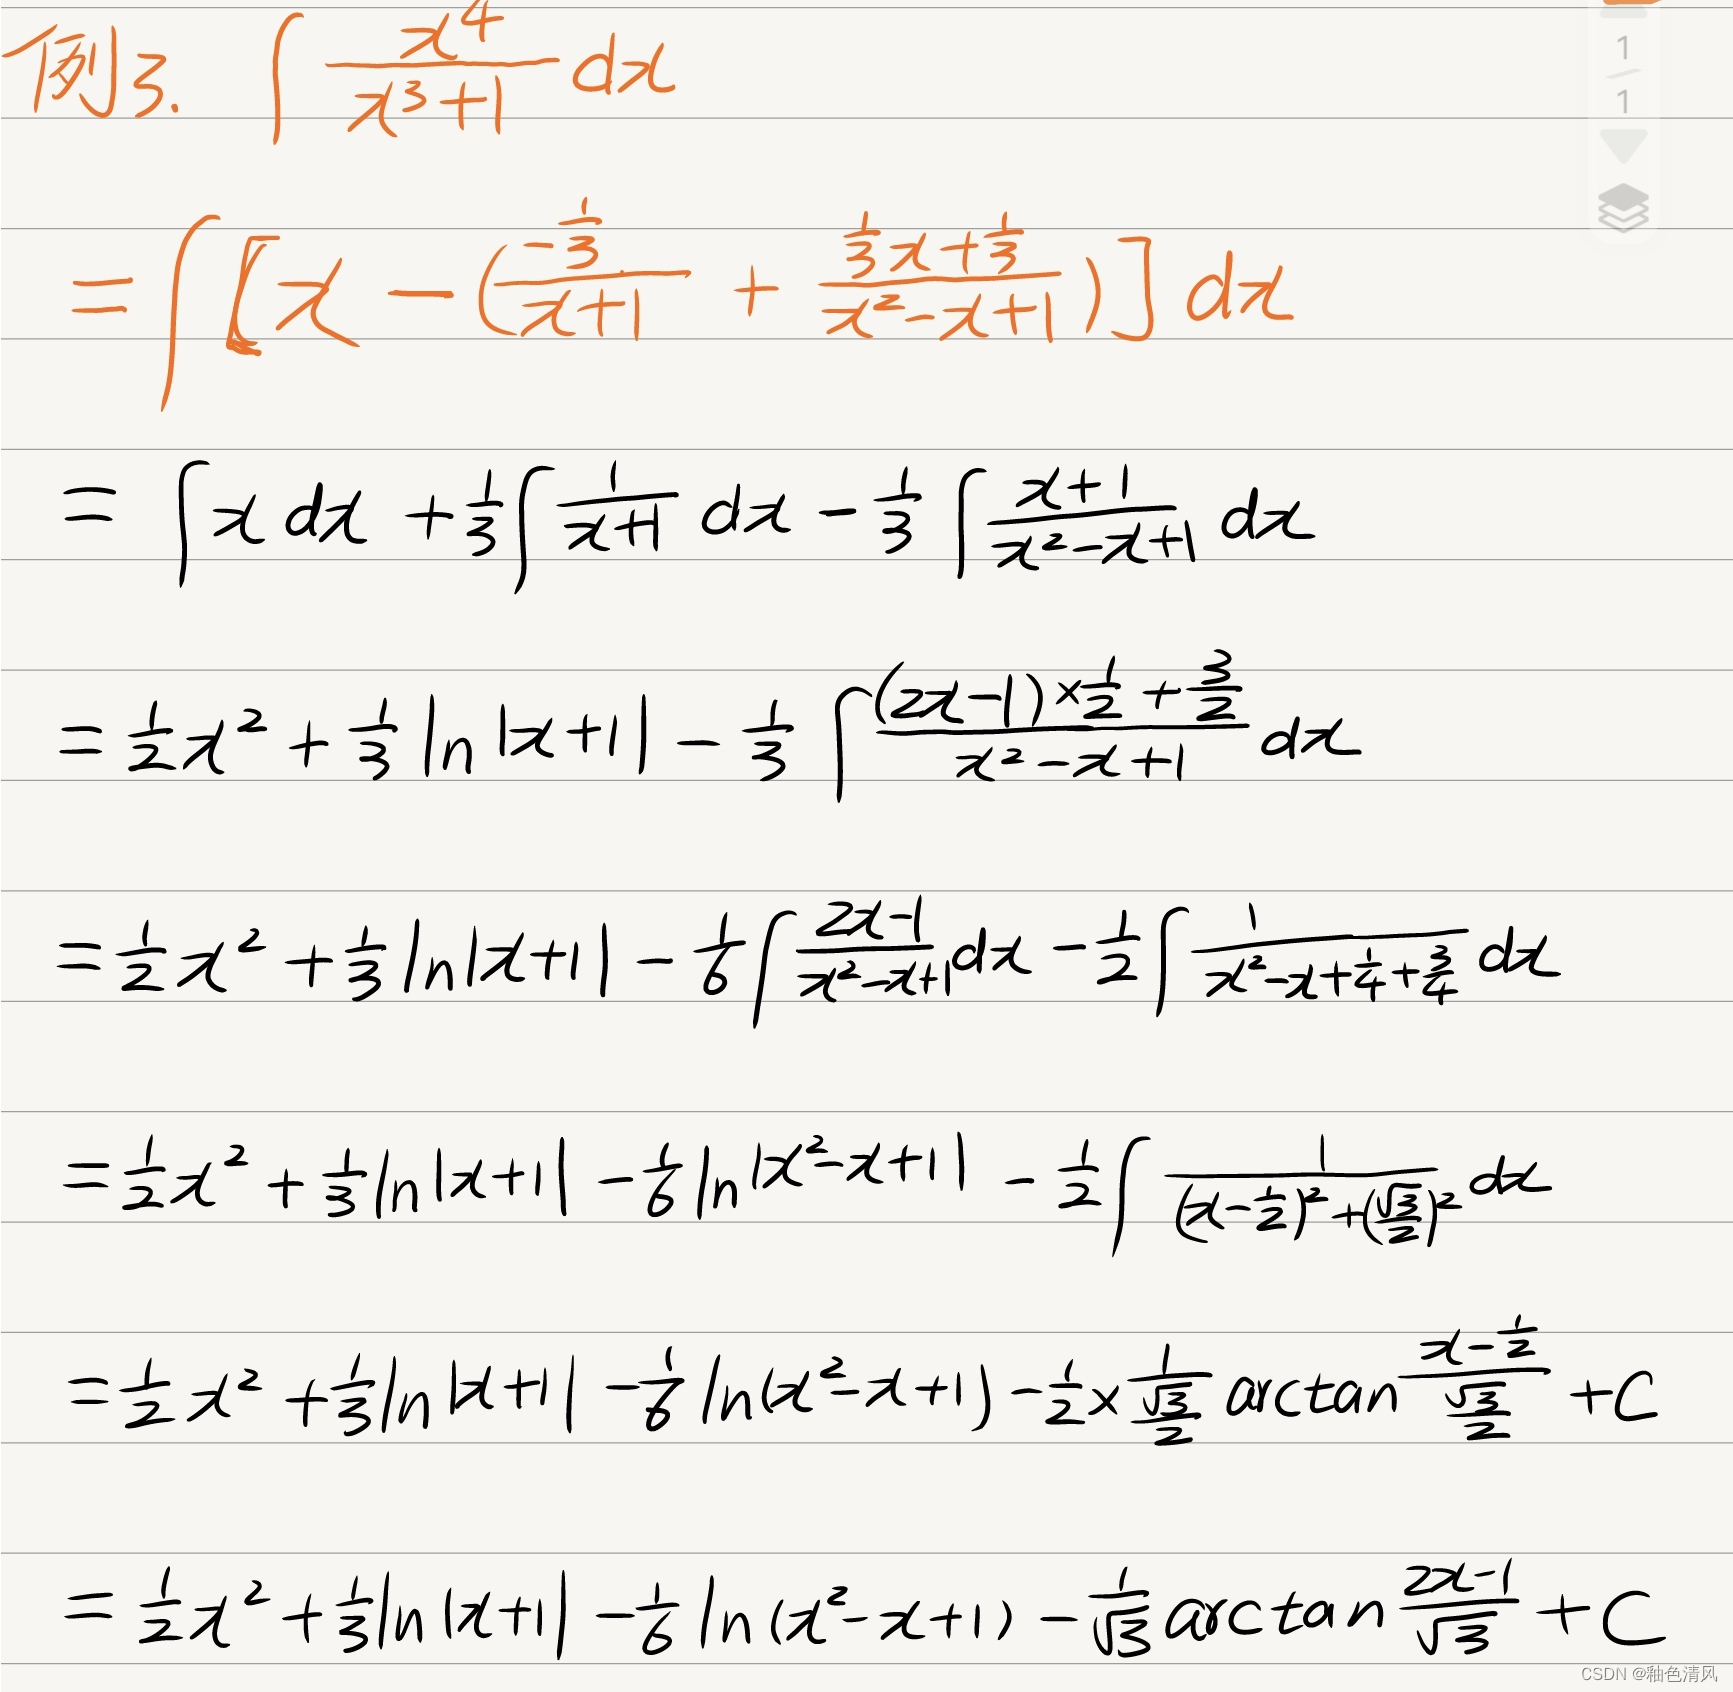 例3. ∫ x⁴/(x³+1) dx
1/1
= ∫ [x − ((−1/3)/(x+1) + (1/3 x + 1/3)/(x²−x+1))] dx
= ∫ x dx + 1/3 ∫ 1/(x+1) dx − 1/3 ∫ (x+1)/(x²−x+1) dx
= 1/2 x² + 1/3 ln|x+1| − 1/3 ∫ ((2x−1)×1/2 + 3/2)/(x²−x+1) dx
= 1/2 x² + 1/3 ln|x+1| − 1/6 ∫ (2x−1)/(x²−x+1) dx − 1/2 ∫ 1/(x²−x+1/4+3/4) dx
= 1/2 x² + 1/3 ln|x+1| − 1/6 ln|x²−x+1| − 1/2 ∫ 1/((x−1/2)²+(√3/2)²) dx
= 1/2 x² + 1/3 ln|x+1| − 1/6 ln(x²−x+1) − 1/2 × 1/(√3/2) arctan (x−1/2)/(√3/2) + C
= 1/2 x² + 1/3 ln|x+1| − 1/6 ln(x²−x+1) − 1/√3 arctan (2x−1)/√3 + C
CSDN @釉色清风